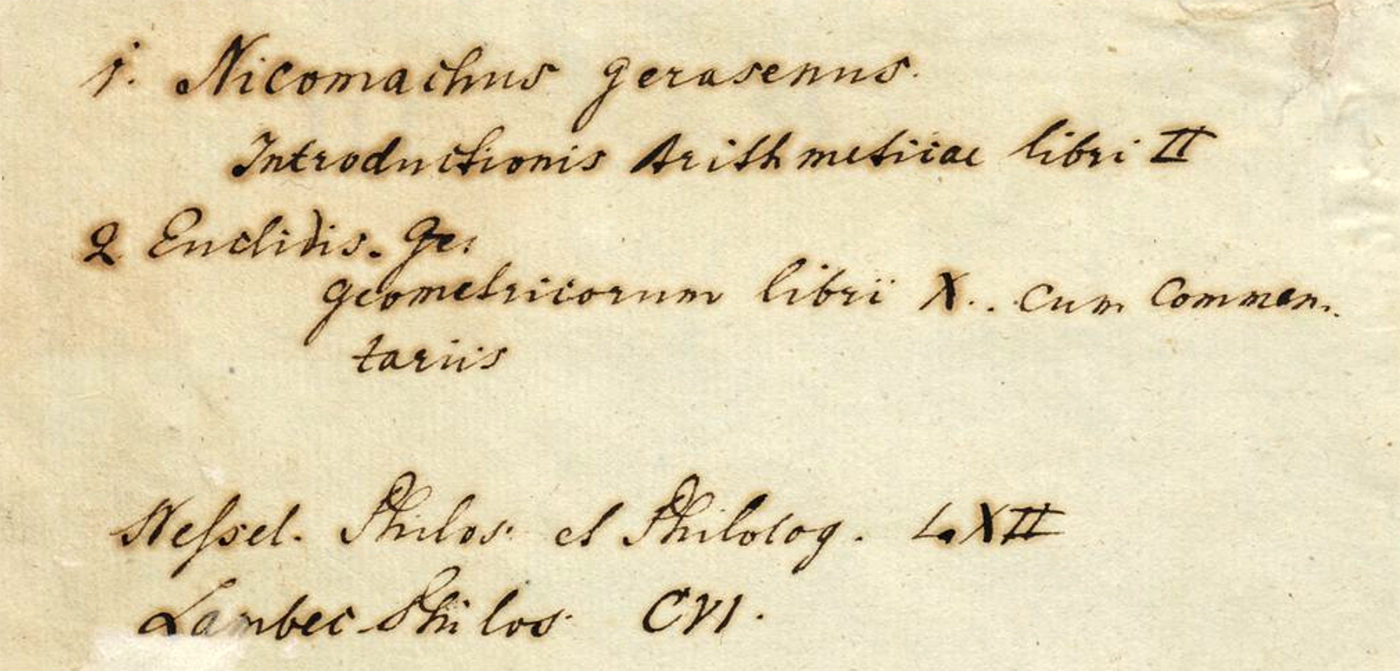 1. Nicomachus gerasenus.
Introductionis Arithmeticae libri II
2 Euclidis. Ge.
geometricorum libri X.. cum Commen.
tariis
Nessel. Philos. et Philolog. LXII
Lambec Philos. CVI.